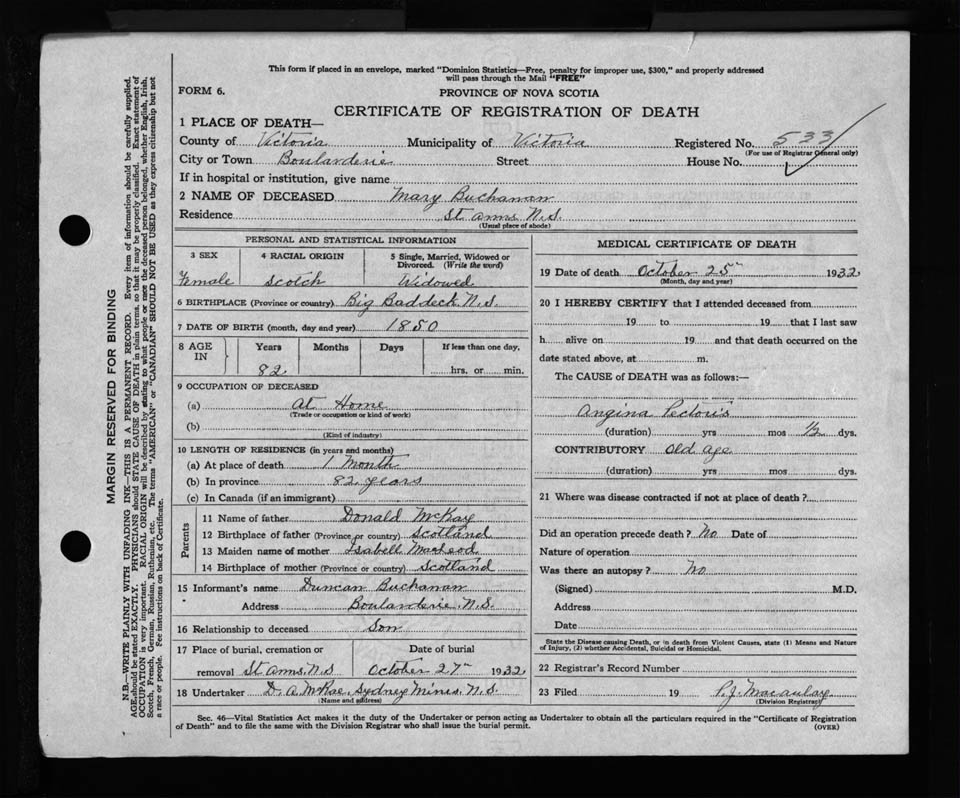 This form if placed in an envelope, marked "Dominion Statistics—Free, penalty for improper use, $300," and properly addressed
will pass through the Mail "FREE"
FORM 6.
PROVINCE OF NOVA SCOTIA
CERTIFICATE OF REGISTRATION OF DEATH
1 PLACE OF DEATH—
County of Victoria Municipality of Victoria Registered No. 533
(For use of Registrar General only)
City or Town Boularderie Street House No.
If in hospital or institution, give name
2 NAME OF DECEASED Mary Buchanan
Residence St anns N.S.
(Usual place of abode)
PERSONAL AND STATISTICAL INFORMATION
3 SEX 4 RACIAL ORIGIN 5 Single, Married, Widowed or
Divorced. (Write the word)
Female Scotch Widowed
6 BIRTHPLACE (Province or country) Big Baddeck N.S.
7 DATE OF BIRTH (month, day and year) 1850
8 AGE
IN
Years Months Days If less than one day,
82 hrs. or min.
9 OCCUPATION OF DECEASED
(a) At Home
(Trade or occupation or kind of work)
(b)
(Kind of industry)
10 LENGTH OF RESIDENCE (in years and months)
(a) At place of death 1 Month
(b) In province 82 years
(c) In Canada (if an immigrant)
Parents
11 Name of father Donald McKay
12 Birthplace of father (Province or country) Scotland
13 Maiden name of mother Isabell MacLeod
14 Birthplace of mother (Province or country) Scotland
15 Informant's name Duncan Buchanan
Address Boularderie N.S.
16 Relationship to deceased Son
17 Place of burial, cremation or Date of burial
removal St anns N.S October 27th 1932
18 Undertaker D. A. McRae, Sydney Mines N.S.
(Name and address)
MEDICAL CERTIFICATE OF DEATH
19 Date of death October 25th 1932
(Month, day and year)
20 I HEREBY CERTIFY that I attended deceased from
19 to 19 that I last saw
h alive on 19 and that death occurred on the
date stated above, at m.
The CAUSE of DEATH was as follows:—
Angina Pectoris
(duration) yrs mos ½ dys.
CONTRIBUTORY Old Age
(duration) yrs mos dys.
21 Where was disease contracted if not at place of death?
Did an operation precede death? No Date of
Nature of operation
Was there an autopsy? No
(Signed) M.D.
Address
Date
State the Disease causing Death, or in death from Violent Causes, state (1) Means and Nature
of Injury, (2) whether Accidental, Suicidal or Homicidal.
22 Registrar's Record Number
23 Filed 19 P.J. Macaulay
(Division Registrar)
Sec. 46—Vital Statistics Act makes it the duty of the Undertaker or person acting as Undertaker to obtain all the particulars required in the "Certificate of Registration
of Death" and to file the same with the Division Registrar who shall issue the burial permit.
(OVER)
MARGIN RESERVED FOR BINDING
N.B.—WRITE PLAINLY WITH UNFADING INK—THIS IS A PERMANENT RECORD. Every item of information should be carefully supplied.
AGE should be stated EXACTLY. PHYSICIANS should STATE CAUSE OF DEATH in plain terms, so that it may be properly classified. Exact statement of
OCCUPATION is very important. RACIAL ORIGIN will be described by stating to what people or race the deceased person belonged, whether English, Irish,
Scotch, French, German, Russian, Ruthenian, etc. The terms "AMERICAN" or "CANADIAN" SHOULD NOT BE USED as they express citizenship but not
a race or people. Fee instructions on back of Certificate.